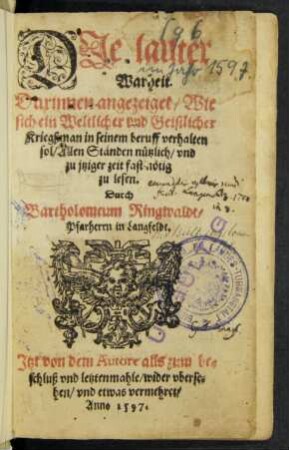 DJe lauter
Warheit.
Darinnen angezeiget / Wie
sich ein Weltlicher vnd Geistlicher
Kriegsman in seinem beruff verhalten
sol / Allen Stånden nützlich / vnd
zu jtziger zeit fast nötig
zu lesen.
Durch
Bartholomeum Ringwaldt /
Pfarherrn in Langfeldt.
Jtzt von dem Autore alls zum be-
schluß vnd letztenmahle / wider vberse-
hen / vnd etwas vermehret /
Anno 1597.